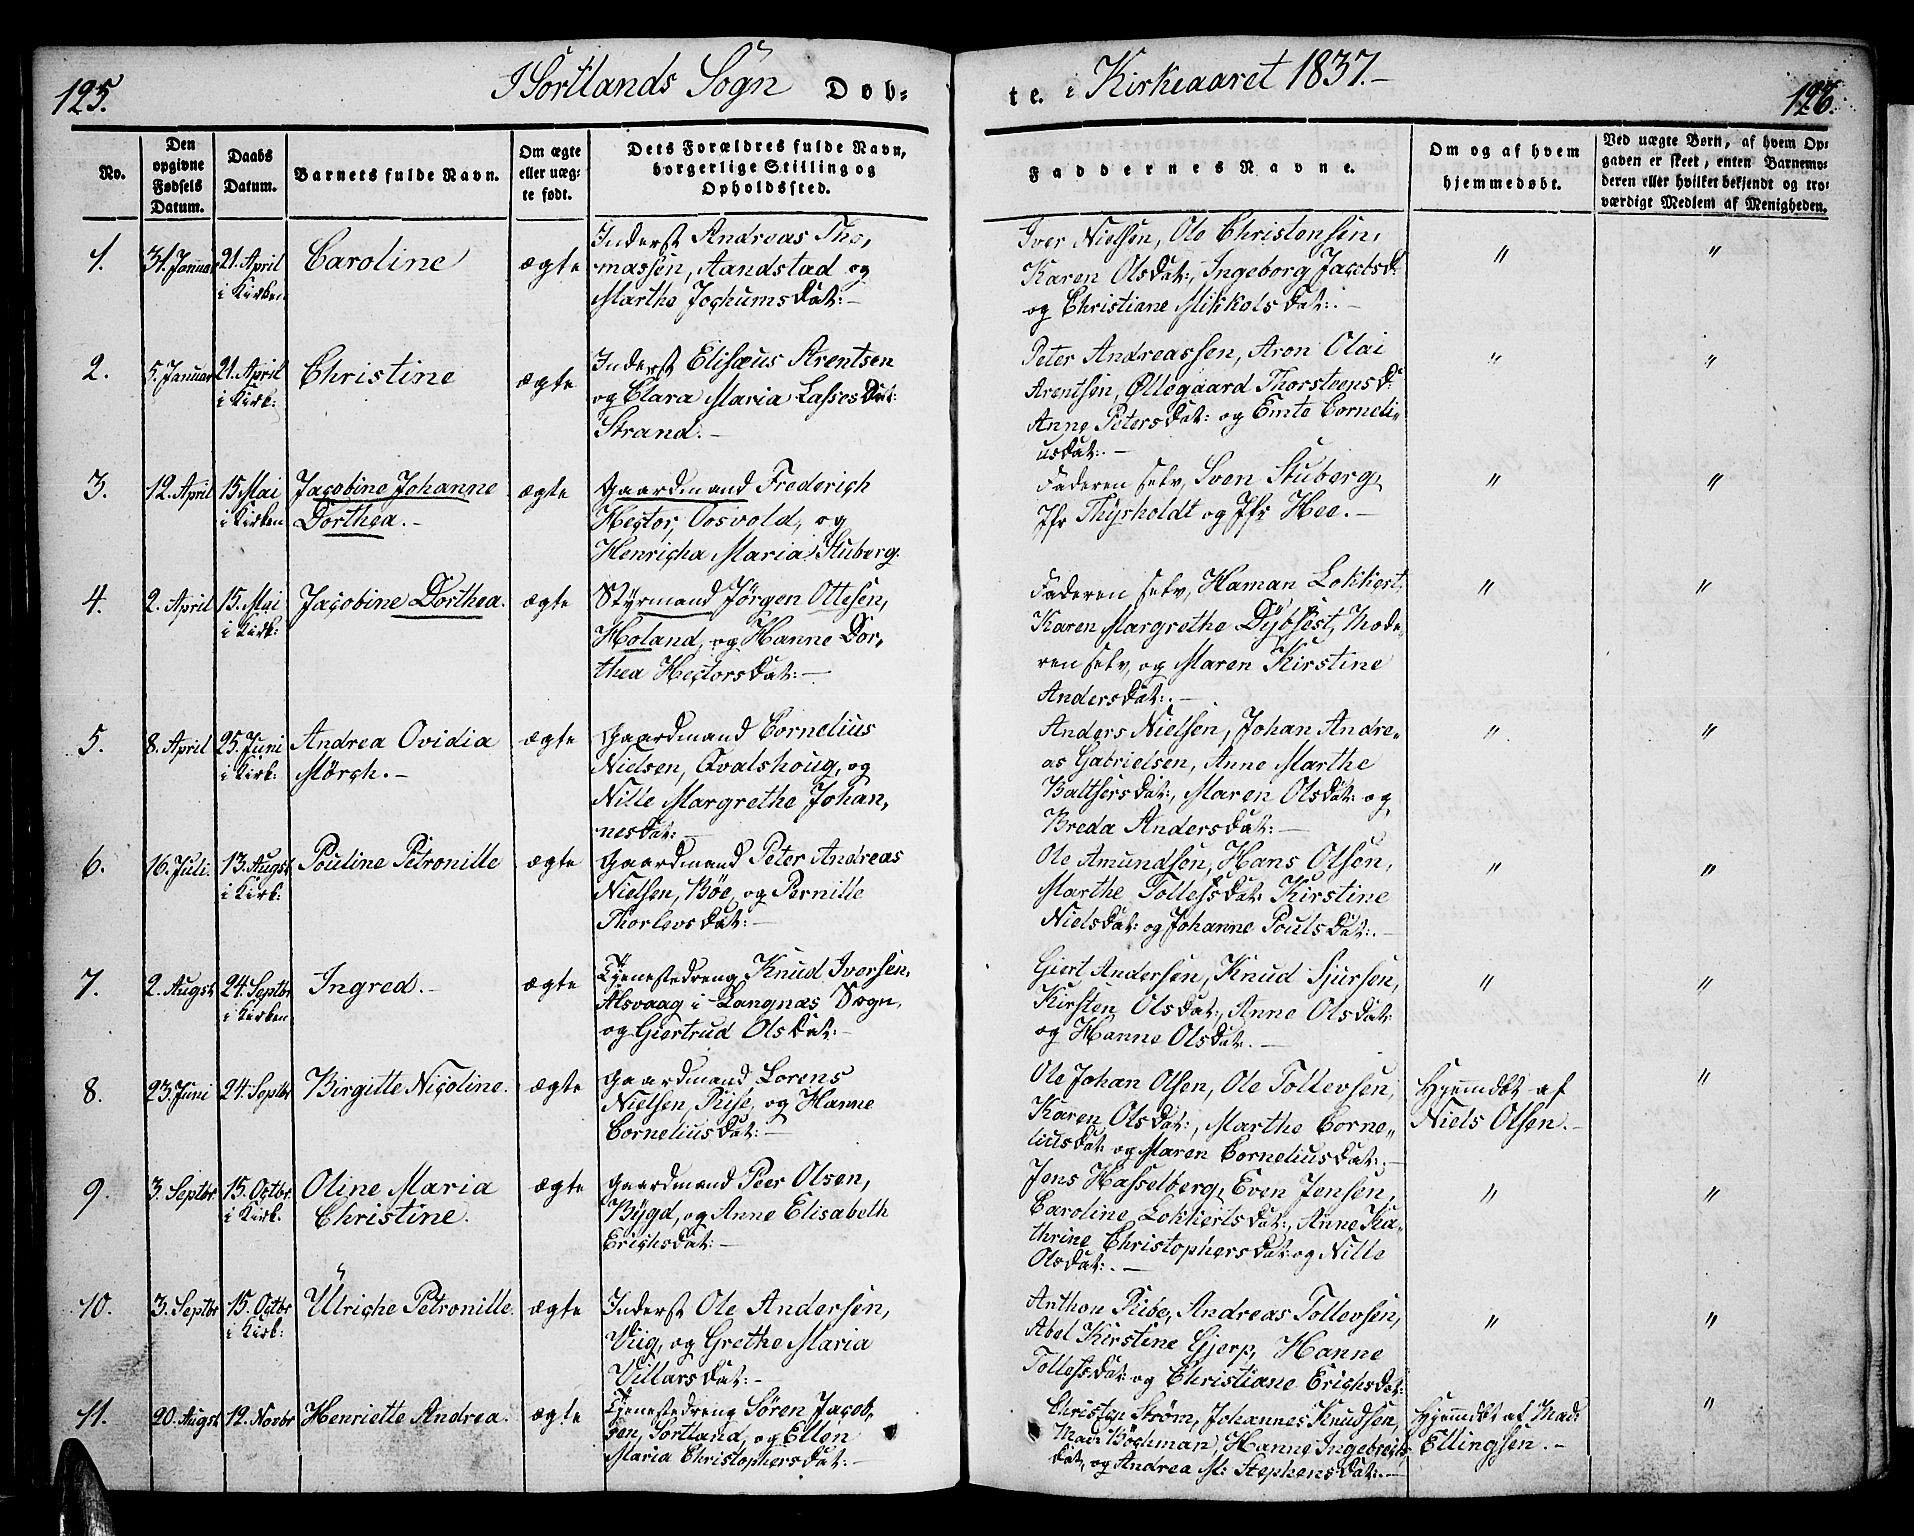 125.
I Sortlands Sogn Dob-
te. i Kirkeaaret 1837.-
126.
No.
Den opgivne Fødsels Datum.
Daabs Datum.
Barnets fulde Navn.
Om ægte eller uæg-
te født.
Dets Forældres fulde Navn,
borgerlige Stilling og
Opholdssted.
Faddernes Navne.
Om og af hvem
hjemmedøbt.
Ved uægte Børn, af hvem Op-
gaven er skeet, enten Barnemo-
deren eller hvilket bekjendt og tro-
værdigt Medlem af Menigheden.
1.
31. Januar
21. April
i Kirken
Caroline
ægte
Inderst Andreas Tho-
massen, Aandstad og
Marthe Jochumsdat:-
Iver Nielsen, Ole Christensen,
Karen Olsdat:, Ingeborg Jacobsd:
og Christiane Mikkelsdat:.-
"
"
2.
5. Januar
21. April
i Kirk:
Christine
ægte
Inderst Elisæus Arentsen
og Clara Maria Lassesdat:
Strand.-
Peter Andreassen, Aron Olai
Arentsen, Øllegaard Thorsteensd:
Anne Petersdat: og Emte Corneli-
usdat:.-
"
"
3.
12. April
15. Mai
i Kirken
Jacobine Johanne
Dorthea.-
ægte
Gaardmand Frederich
Hector, Oosvold, og
Henricha Maria Stuberg.
Faderen selv, Sven Stuberg,
Jfr Thyrholdt og Jfr Hee.-
"
"
4.
2. April
15. Mai
i Kirk:
Jacobine Dorthea.
ægte
Styrmand Jørgen Ottesen,
Holand, og Hanne Dor-
thea Hectorsdat:-
Faderen selv, Haman Lokkert,
Karen Margrethe Dybfest, Mode-
ren selv, og Maren Kirstine
Andersdat:.-
"
"
5.
8. April
25. Juni
i Kirk:
Andrea Ovidia
Mørch.-
ægte
Gaardmand Cornelius
Nielsen, Qvalshoug, og
Nille Margrethe Johan-
nesdat:-
Anders Nielsen, Johan Andre-
as Gabrielsen, Anne Marthe
Balthersdat:, Maren Olsdat: og
Breda Andersdat:-
"
"
6.
16. Juli.
13. Augst
i Kirk:
Pouline Petronille
ægte
Gaardmand Peter Andreas
Nielsen, Bøe, og Pernille
Thorlevsdat:-
Ole Amundsen, Hans Olsen,
Marthe Tollefsdat: Kirstine
Nielsdat: og Johanne Poulsdat:.-
"
"
7.
2. Augst
24. Septbr
i Kirken
Ingred.-
ægte
Tjenestedreng Knud Iversen,
Alsvaag i Langnæs Sogn,
og Giertrud Olsdat:-
Giert Andersen, Knud Sjursen,
Kirsten Olsdat:, Anne Olsdat:
og Hanne Olsdat:.-
"
"
8.
23. Juni
24. Septbr
Birgitte Nicoline.
ægte
Gaardmand Lorens
Nielsen, Rise, og Hanne
Corneliusdat:-
Ole Johan Olsen, Ole Tollevsen,
Karen Olsdat:, Marthe Corne-
liusdat: og Maren Corneliusdat:.-
Hjemdbt af
Niels Olsen.-
"
9.
3. Septbr.
15. Octbr.
i Kirk.
Oline Maria
Christine.
ægte
Gaardmand Peer Olsen,
Bÿgd, og Anne Elisabeth
Erichsdat:-
Jens Hasselberg, Even Jensen,
Caroline Lokkertsdat:, Anne Ka-
thrine Christophersdat: og Nille
Olsdat:.-
"
"
10.
3. Septbr
15. Octbr
i Kirk:
Ulriche Petronille.
ægte
Inderst Ole Andersen,
Viig, og Grethe Maria
Villarsdat:-
Anthon Ribe, Andreas Tollevsen,
Abel Kirstine Gjerp, Hanne
Tollefsdat: og Christiane Erichsdat:
"
"
11.
20. Augst
12. Novbr
Henriette Andrea.
ægte
Tjenestedreng Søren Jacob-
sen, Sortland, og Ellen
Maria Christophersdat:-
Christen Strøm, Johannes Knudsen,
Mad: Bochman, Hanne Ingebreits-
dat, og Andrea M: Stephensdat:.-
Hjemdbt af Mad:
Ellingsen.-
"